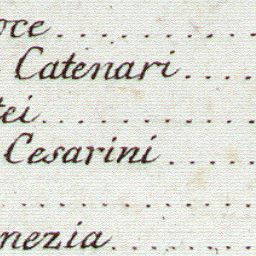 oce..........
Catenari.....
tei..........
Cesarini.....
.............
nezia........